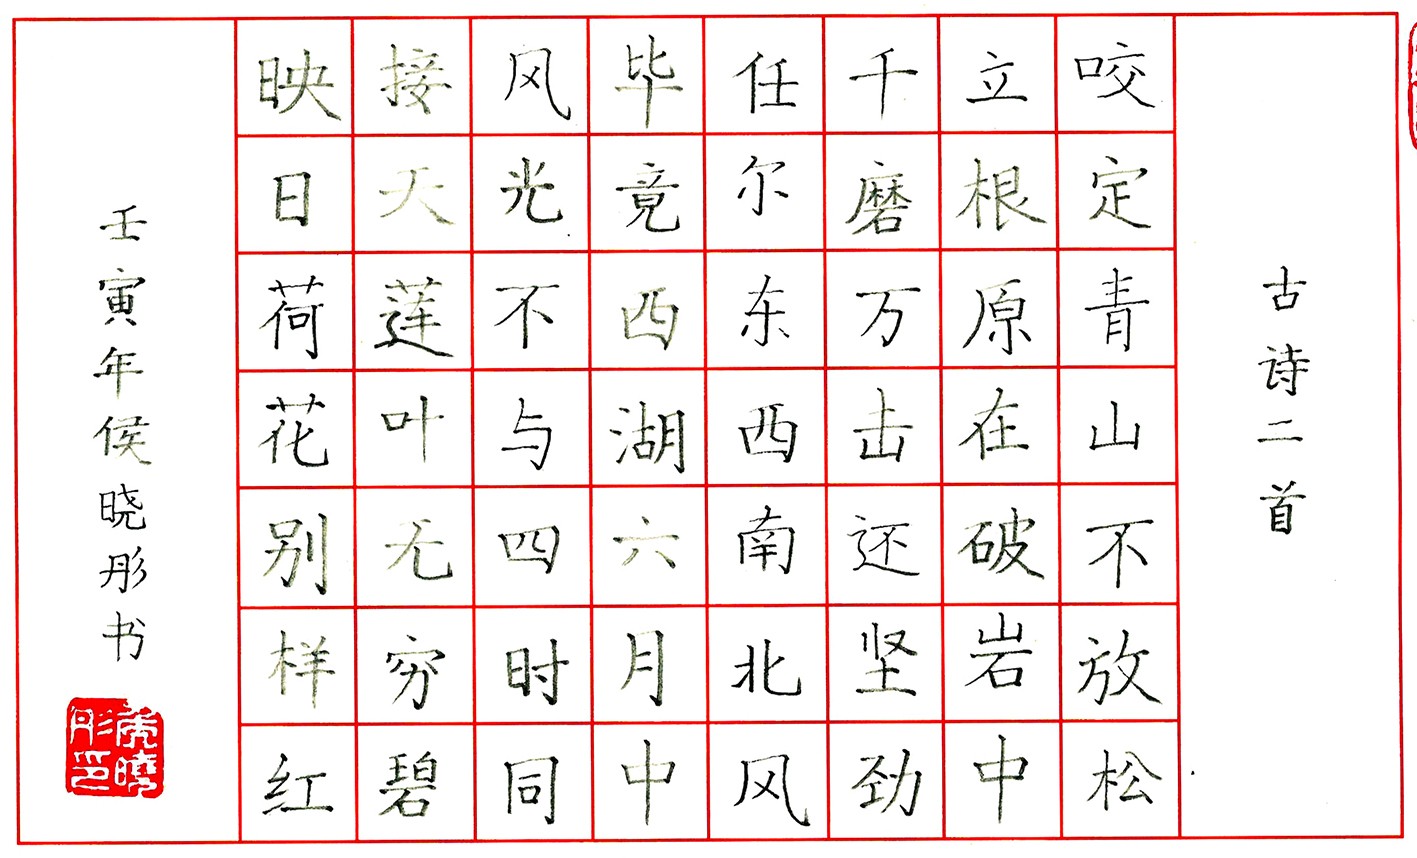 古诗二首
咬定青山不放松
立根原在破岩中
千磨万击还坚劲
任尔东西南北风
毕竟西湖六月中
风光不与四时同
接天莲叶无穷碧
映日荷花别样红
壬寅年侯晓彤书
侯曉
彤印